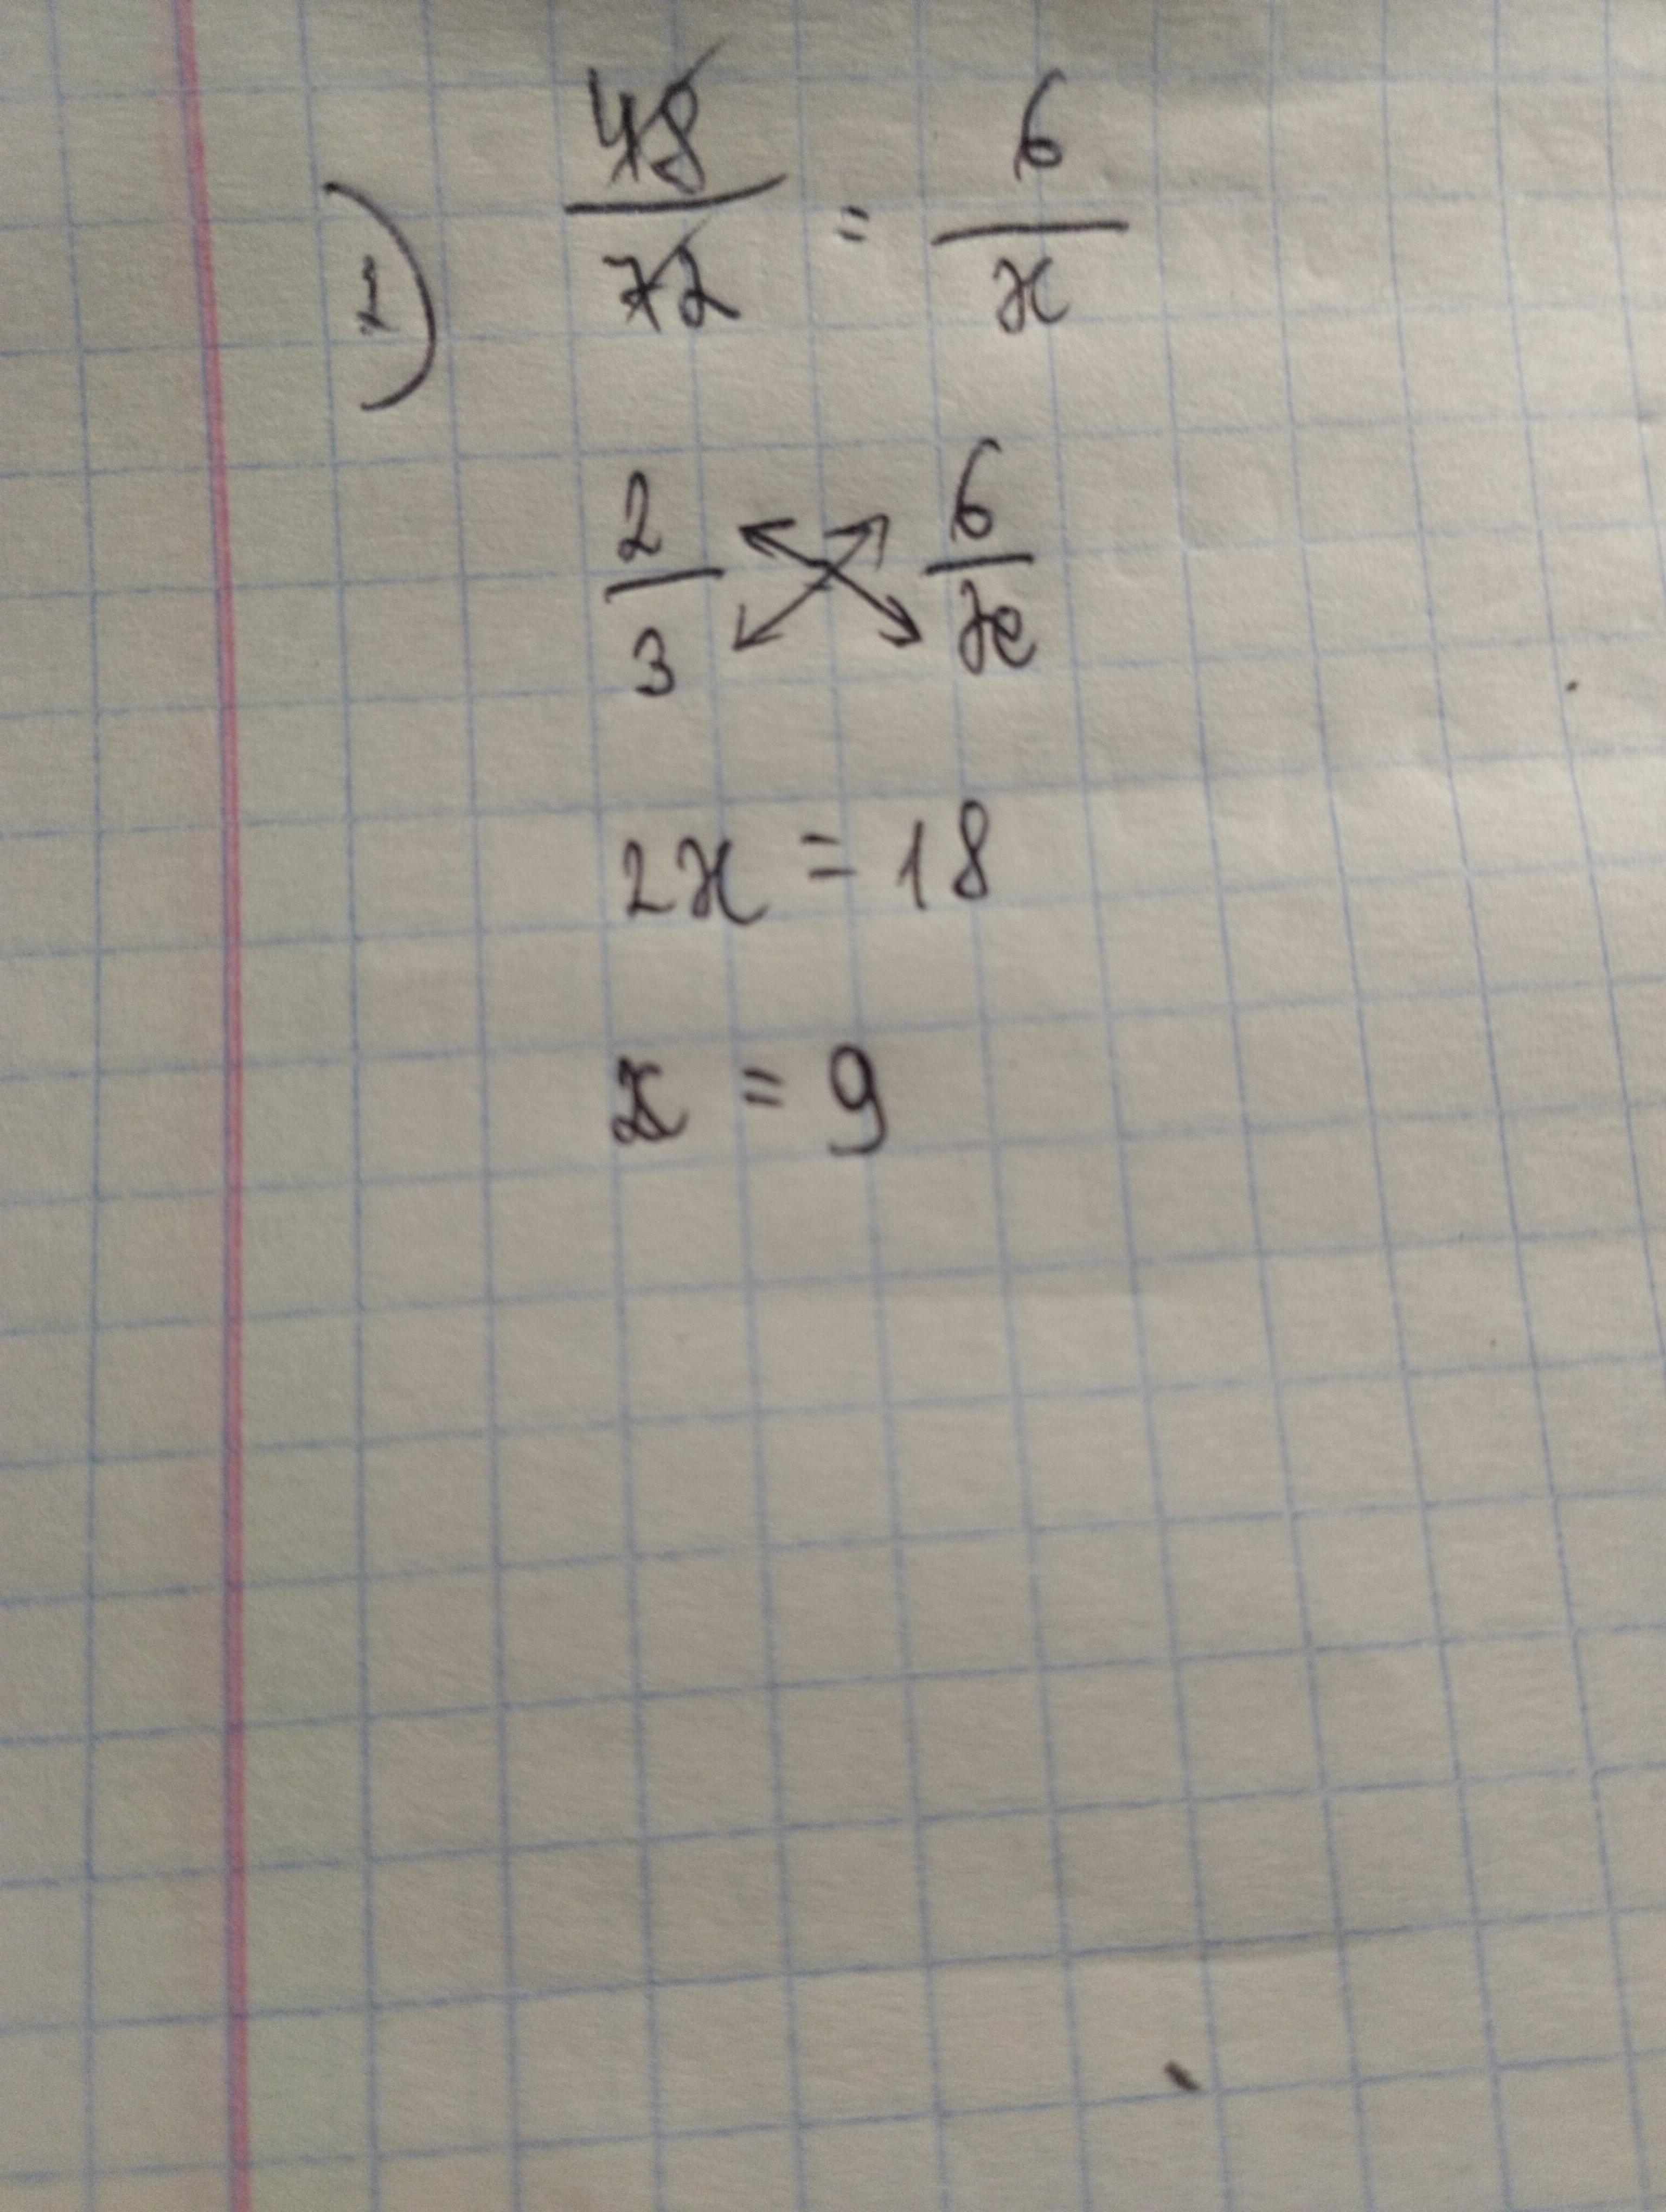 1) 48/72 = 6/x
2/3 6/x
2x = 18
x = 9